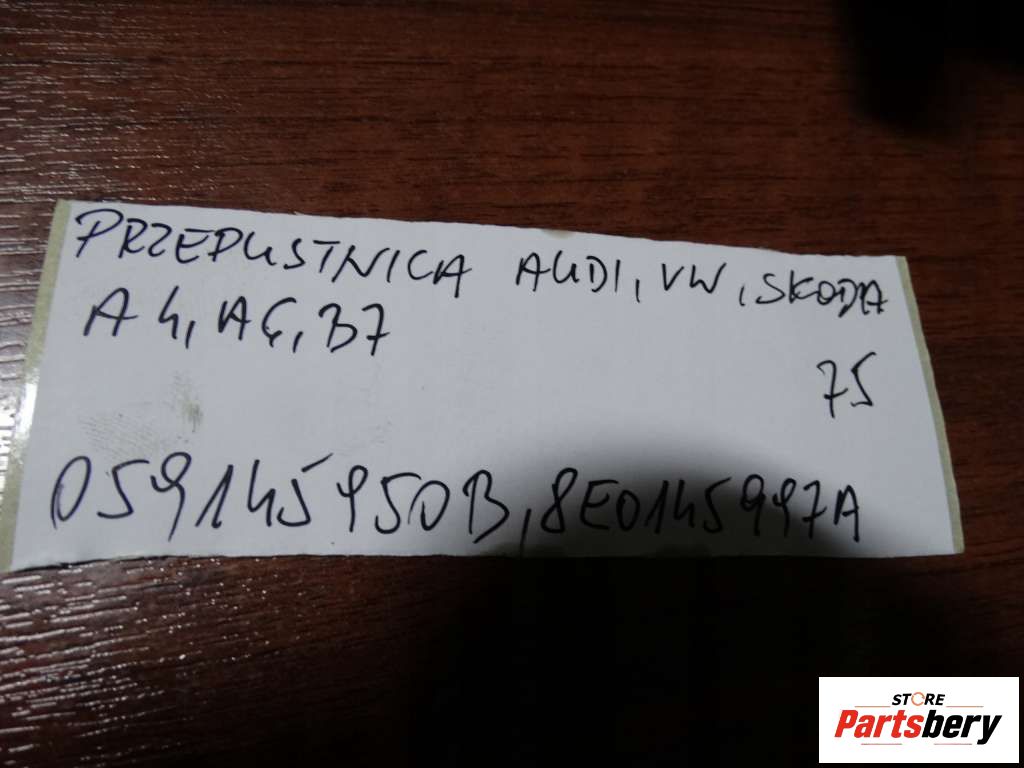 PRZEPUSTNICA AUDI, VW, SKODA
A4, A6, B7
75
059145950B, 8E0145997A
STORE
Partsbery